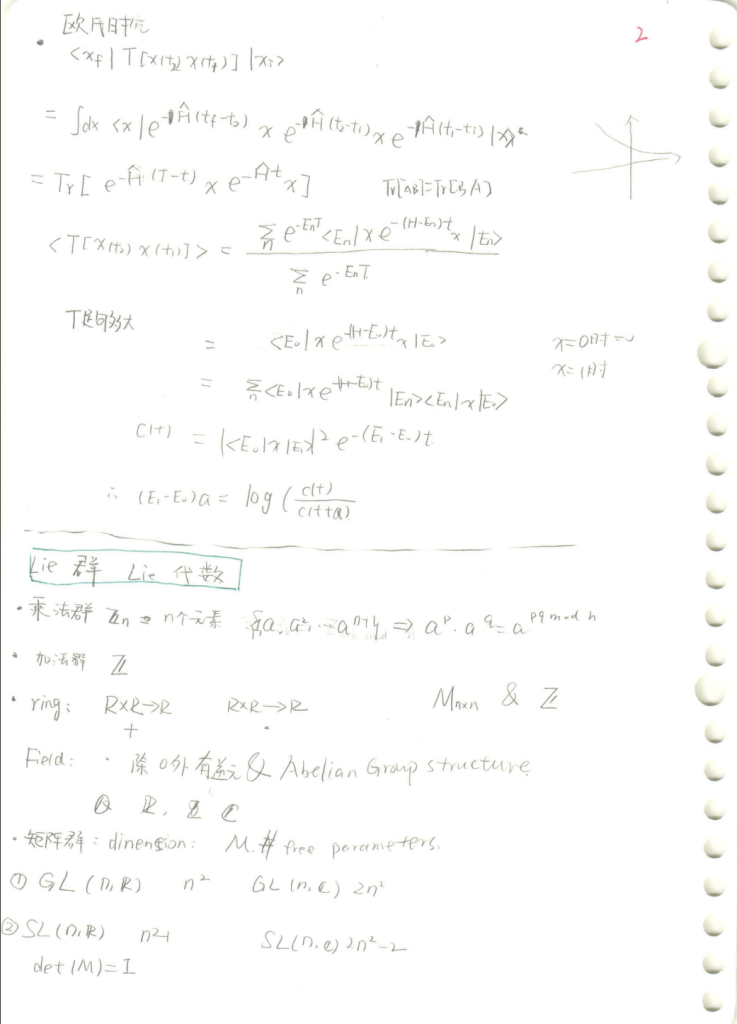 2
欧氏时空
• <x_f| T[x(t_2) x(t_1)] |x_i>
= ∫dx <x| e^{-Ĥ(t_f-t_2)} x e^{-Ĥ(t_2-t_1)} x e^{-Ĥ(t_1-t_i)} |x>
= Tr[ e^{-Ĥ(T-t)} x e^{-Ĥt} x ] Tr[AB]=Tr[BA]
<T[x(t_2) x(t_1)]> = \frac{∑_n e^{-E_nT} <E_n| x e^{-(H-E_n)t} x |E_n>}{∑_n e^{-E_nT}}
T足够大 = <E_0| x e^{-(H-E_0)t} x |E_0> x=0时
= ∑_n <E_0| x e^{-(H-E_0)t} |E_n><E_n| x |E_0> x=1时
C(t) = |<E_0|x|E_1>|^2 e^{-(E_1-E_0)t}
∴ (E_1-E_0)a = log( \frac{c(t)}{c(t+a)} )
Lie 群 Lie 代数
• 乘法群 ℤ_n n个元素 a, a^2, … ⇒ a^p · a^q = a^{pq mod n}
• 加法群 ℤ
• ring: R×R→R R×R→R M_{n×n} & ℤ
+ ·
Field: · 除0外有逆元 & Abelian Group structure
ℚ ℝ, ℂ
• 矩阵群: dinension: M. # free parameters.
① GL(n,ℝ) n^2 GL(n,ℂ) 2n^2
② SL(n,ℝ) n^2-1 SL(n,ℂ) 2n^2-2
det(M)=I